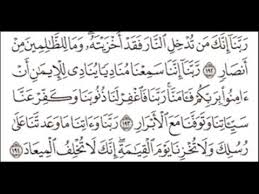 رَبَّنَا إِنَّكَ مَن تُدْخِلِ النَّارَ فَقَدْ أَخْزَيْتَهُۥ وَمَا لِلظَّٰلِمِينَ مِنْ
أَنصَارٍ ١٩٢ رَّبَّنَا إِنَّنَا سَمِعْنَا مُنَادِيًا يُنَادِى لِلْإِيمَٰنِ أَنْ
ءَامِنُوا۟ بِرَبِّكُمْ فَـَٔامَنَّا رَبَّنَا فَٱغْفِرْ لَنَا ذُنُوبَنَا وَكَفِّرْ عَنَّا
سَيِّـَٔاتِنَا وَتَوَفَّنَا مَعَ ٱلْأَبْرَارِ ١٩٣ رَبَّنَا وَءَاتِنَا مَا وَعَدتَّنَا عَلَىٰ
رُسُلِكَ وَلَا تُخْزِنَا يَوْمَ ٱلْقِيَٰمَةِ إِنَّكَ لَا تُخْلِفُ ٱلْمِيعَادَ ١٩٤